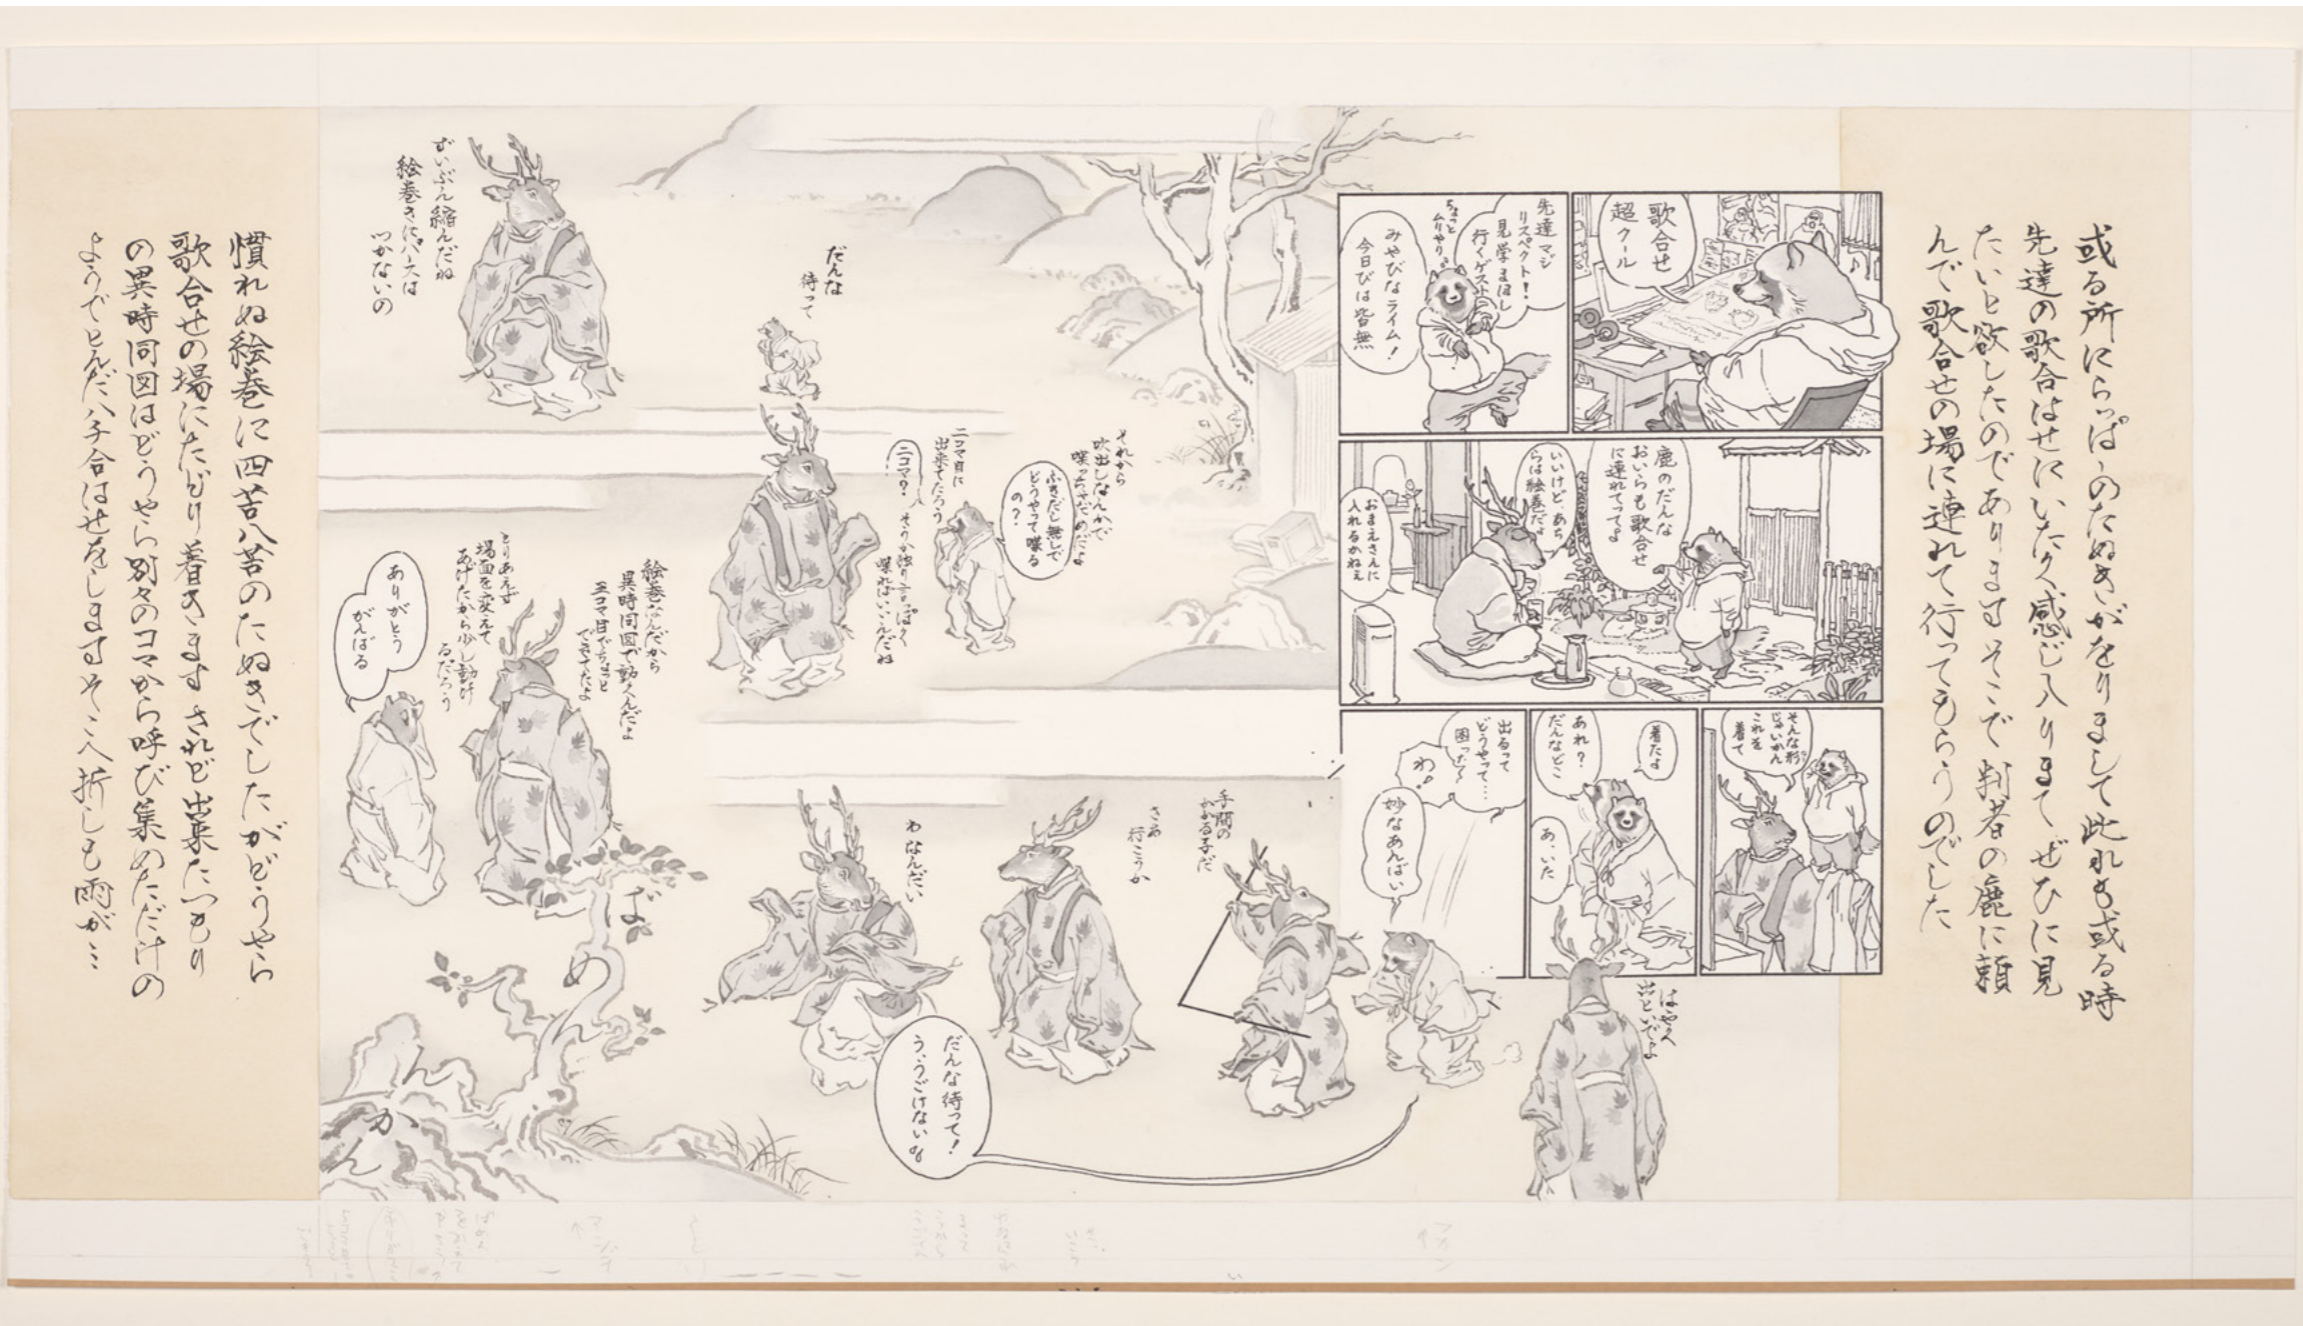 或る所にらっぱのたぬきがをりまして此れも或る時
先達の歌合はせにいたく感じ入りまして、ぜひに見
たいと欲したのでありますそこで判者の鹿に頼
んで歌合せの場に連れて行ってもらうのでした
歌合せ
超クール
先達マジ
リスペクト!
見学まぼし
行くゲスト
ちょっと
ムリやり
みやびなライム!
今日びは皆無
鹿のだんな
おいらも歌合せ
に連れてって
いいけど、あち
らは絵巻だよ
おまえさんに
入れるかねえ
そんな形
じゃいかん
これを
着て
着たよ
あれ?
だんなどこ
あ、いた
はやく
出といでよ
出るって
どうやって…
困った〜
わ!
妙なあんばい
手間の
かかる子だ
だんな待って!
う、うごけない
さあ
行こうか
わ なんだい
それから
吹出しなんかで
喋っちゃだめだよ
ふきだし無しで
どうやって喋る
の?
二コマ目に
出来てたろう
二コマ?
そりゃ独り言っぽく
喋ればいいんだね
だんな
待って
ずいぶん縮んだね
絵巻きにパースは
つかないの
絵巻なんだから
異時同図で動くんだよ
五コマ目でちょっと
できてたよ
とりあえず
場面を変えて
あげたから少し動け
るだろう
ありがとう
がんばる
ば
め
ん
か
ん
慣れぬ絵巻に四苦八苦のたぬきでしたがどうやら
歌合せの場にたどり着きます されど出来たつもり
の異時同図はどうやら別々のコマから呼び集めただけの
ようでとんだハチ合はせをしますそこへ折しも雨が…